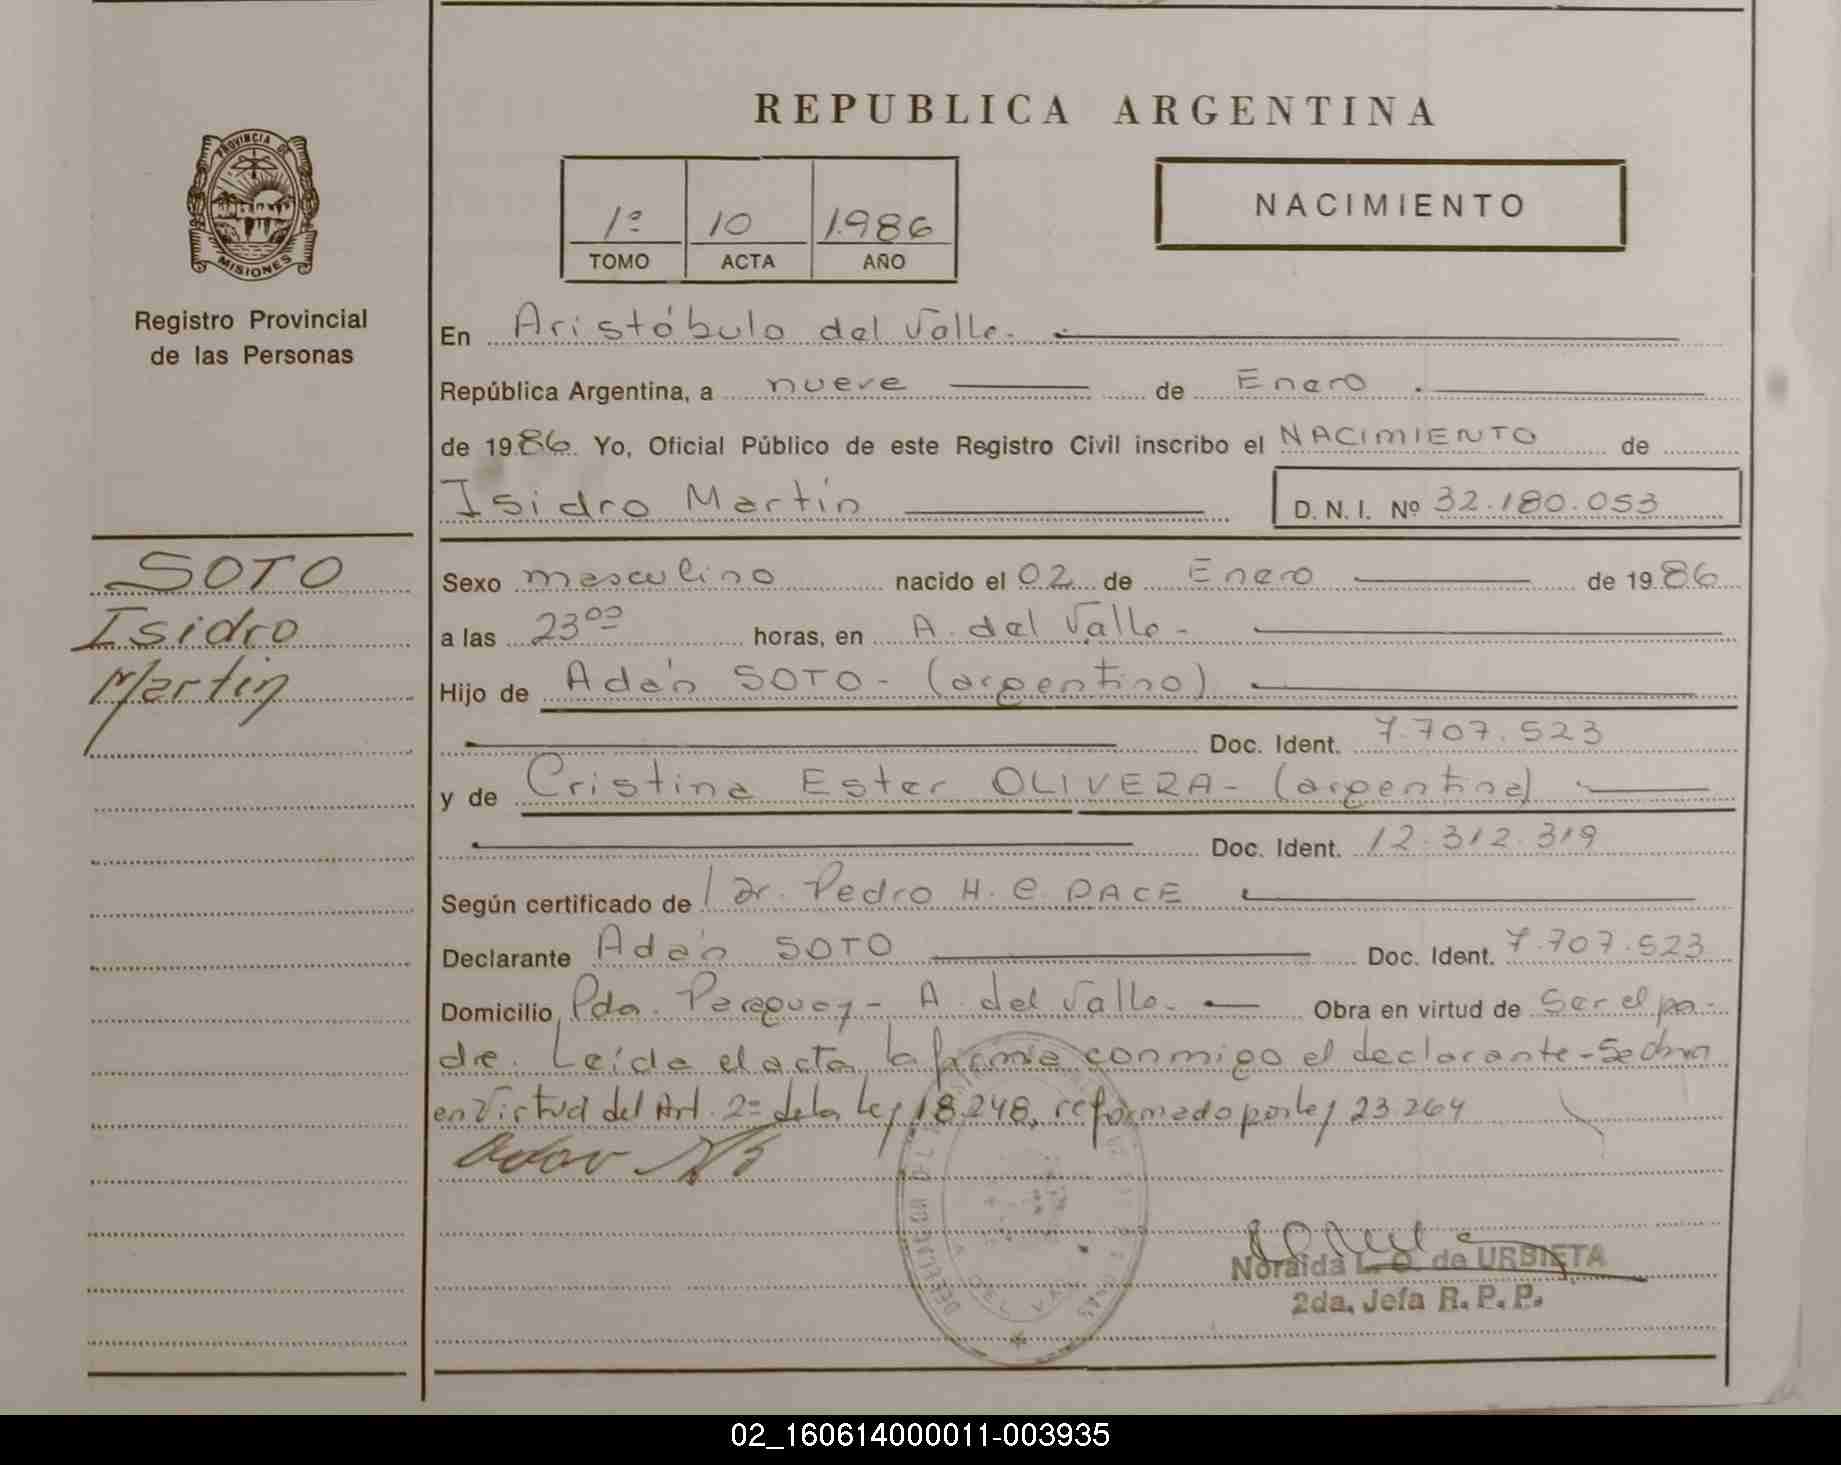 REPUBLICA ARGENTINA
PROVINCIA DE
MISIONES
Registro Provincial
de las Personas
1º 10 1.986
TOMO ACTA AÑO
NACIMIENTO
En Aristóbulo del Valle.-
República Argentina, a nueve de Enero
de 1986. Yo, Oficial Público de este Registro Civil inscribo el NACIMIENTO de
Isidro Martín D.N.I. Nº 32.180.053
SOTO
Isidro
Martin
Sexo masculino nacido el 02 de Enero de 1986
a las 23⁰⁰ horas, en A. del Valle-
Hijo de Adán SOTO- (argentino)
Doc. Ident. 7.707.523
y de Cristina Ester OLIVERA- (argentina)
Doc. Ident. 12.312.319
Según certificado de Dr. Pedro H. C. DACE
Declarante Adán SOTO Doc. Ident. 7.707.523
Domicilio Pda. Paraguay- A. del Valle.- Obra en virtud de ser el pa-
dre. Leída el acta, la firma conmigo el declarante-
en Virtud del Art. 2º de la Ley 18.248, reformado por Ley 23.264
Noraida L. O. de URBIETA
2da. Jefa R. P. P.
02_160614000011-003935